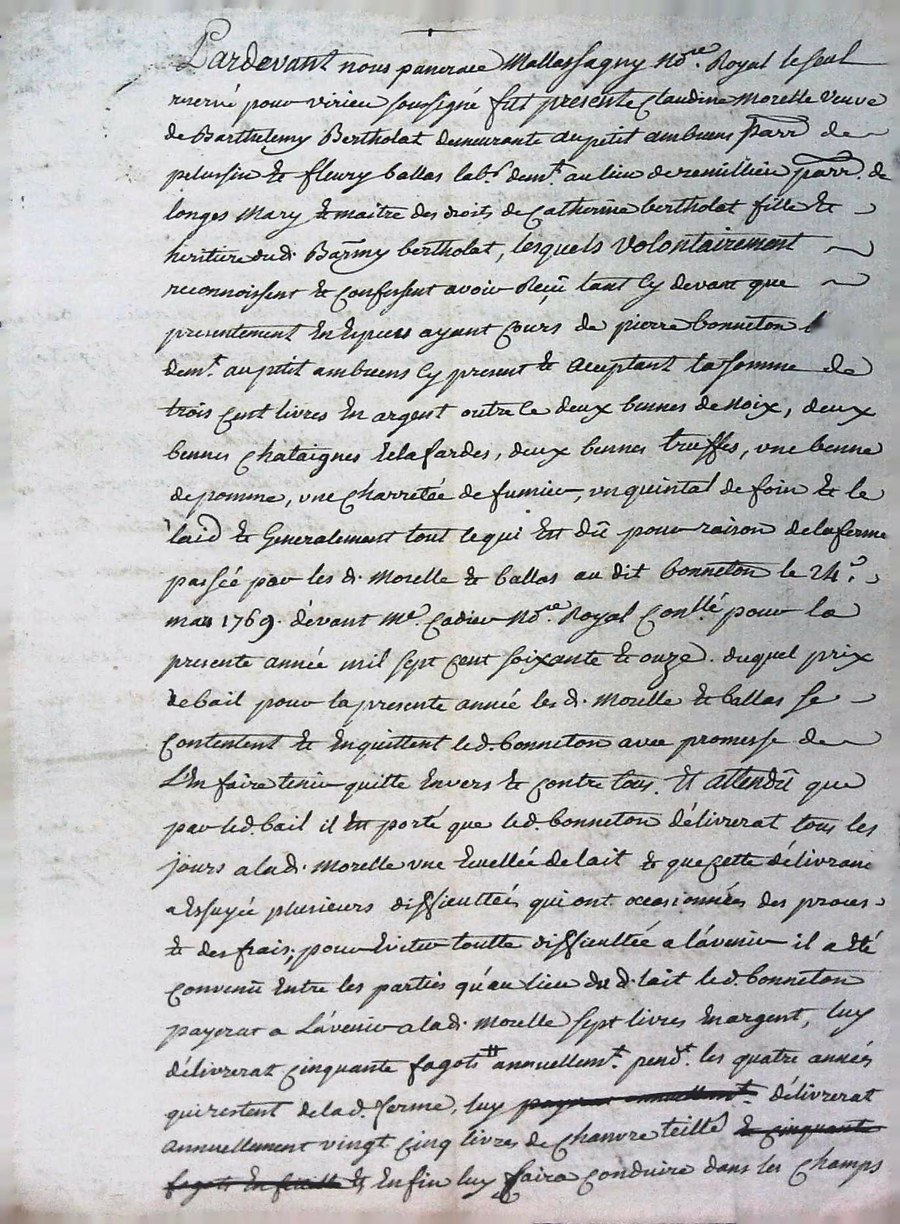 Pardevant nous pancrace Mallassagny No.re Royal le seul
reservé pour virieu soussigné fut presente Claudine Morelle veuve
de Barthelemy Bertholat demeurante au petit ambuens parr de
pelussin & fleury ballas lab.r dem.t au lieu de remillieu parr. de
longes Mary & maitre des droits de Catherine bertholat fille &
heritiere dud. Barmy bertholat, lesquels volontairement
reconnoissent & confessent avoir Reçû tant cy devant que
presentement En Especes ayant Cours de pierre bonneton l
dem.t au petit ambuens cy present & aceptant la somme de
trois cent livres En argent outre ce deux bennes de Noix, deux
bennes chataignes, deux bennes truffes, une benne
de pomme, une charretée de fumier, un quintal de foin & le
laid & Generalement tout ce qui Est dû pour raison de la ferme
passée par les d. Morelle & ballas au dit bonneton le 24.e
mars 1769. dévant M.e Cadier No.re Royal Con.llé pour la
presente année mil sept cent soixante & onze. duquel prix
de bail pour la presente année les d. Morelle & ballas se
Contentent & Enquittent led. bonneton avec promesse de
L'En faire tenir quitte Envers & contre tous. Et attendû que
par led. bail il Est porté que led. bonneton délivrerat tous les
jours a lad. Morelle une Ecuellée de lait & que cette délivrance
a Essuyée plusieurs difficultés qui ont occasionnées des proces
& des frais; pour Eviter toutte difficultée a l'avenir il a été
Convenû Entre les parties qu'au lieu du d. lait led. bonneton
payerat a L'avenir a lad. Morelle sept livres En argent, luy
délivrerat cinquante fagots annuellem.t pend.t les quatre années
qui restent de lad. ferme, luy payerat annuellem.t délivrerat
annuellement vingt cinq livres de chanvre teillé & cinquante
fagots En feuille & Enfin luy faira conduire dans les champs